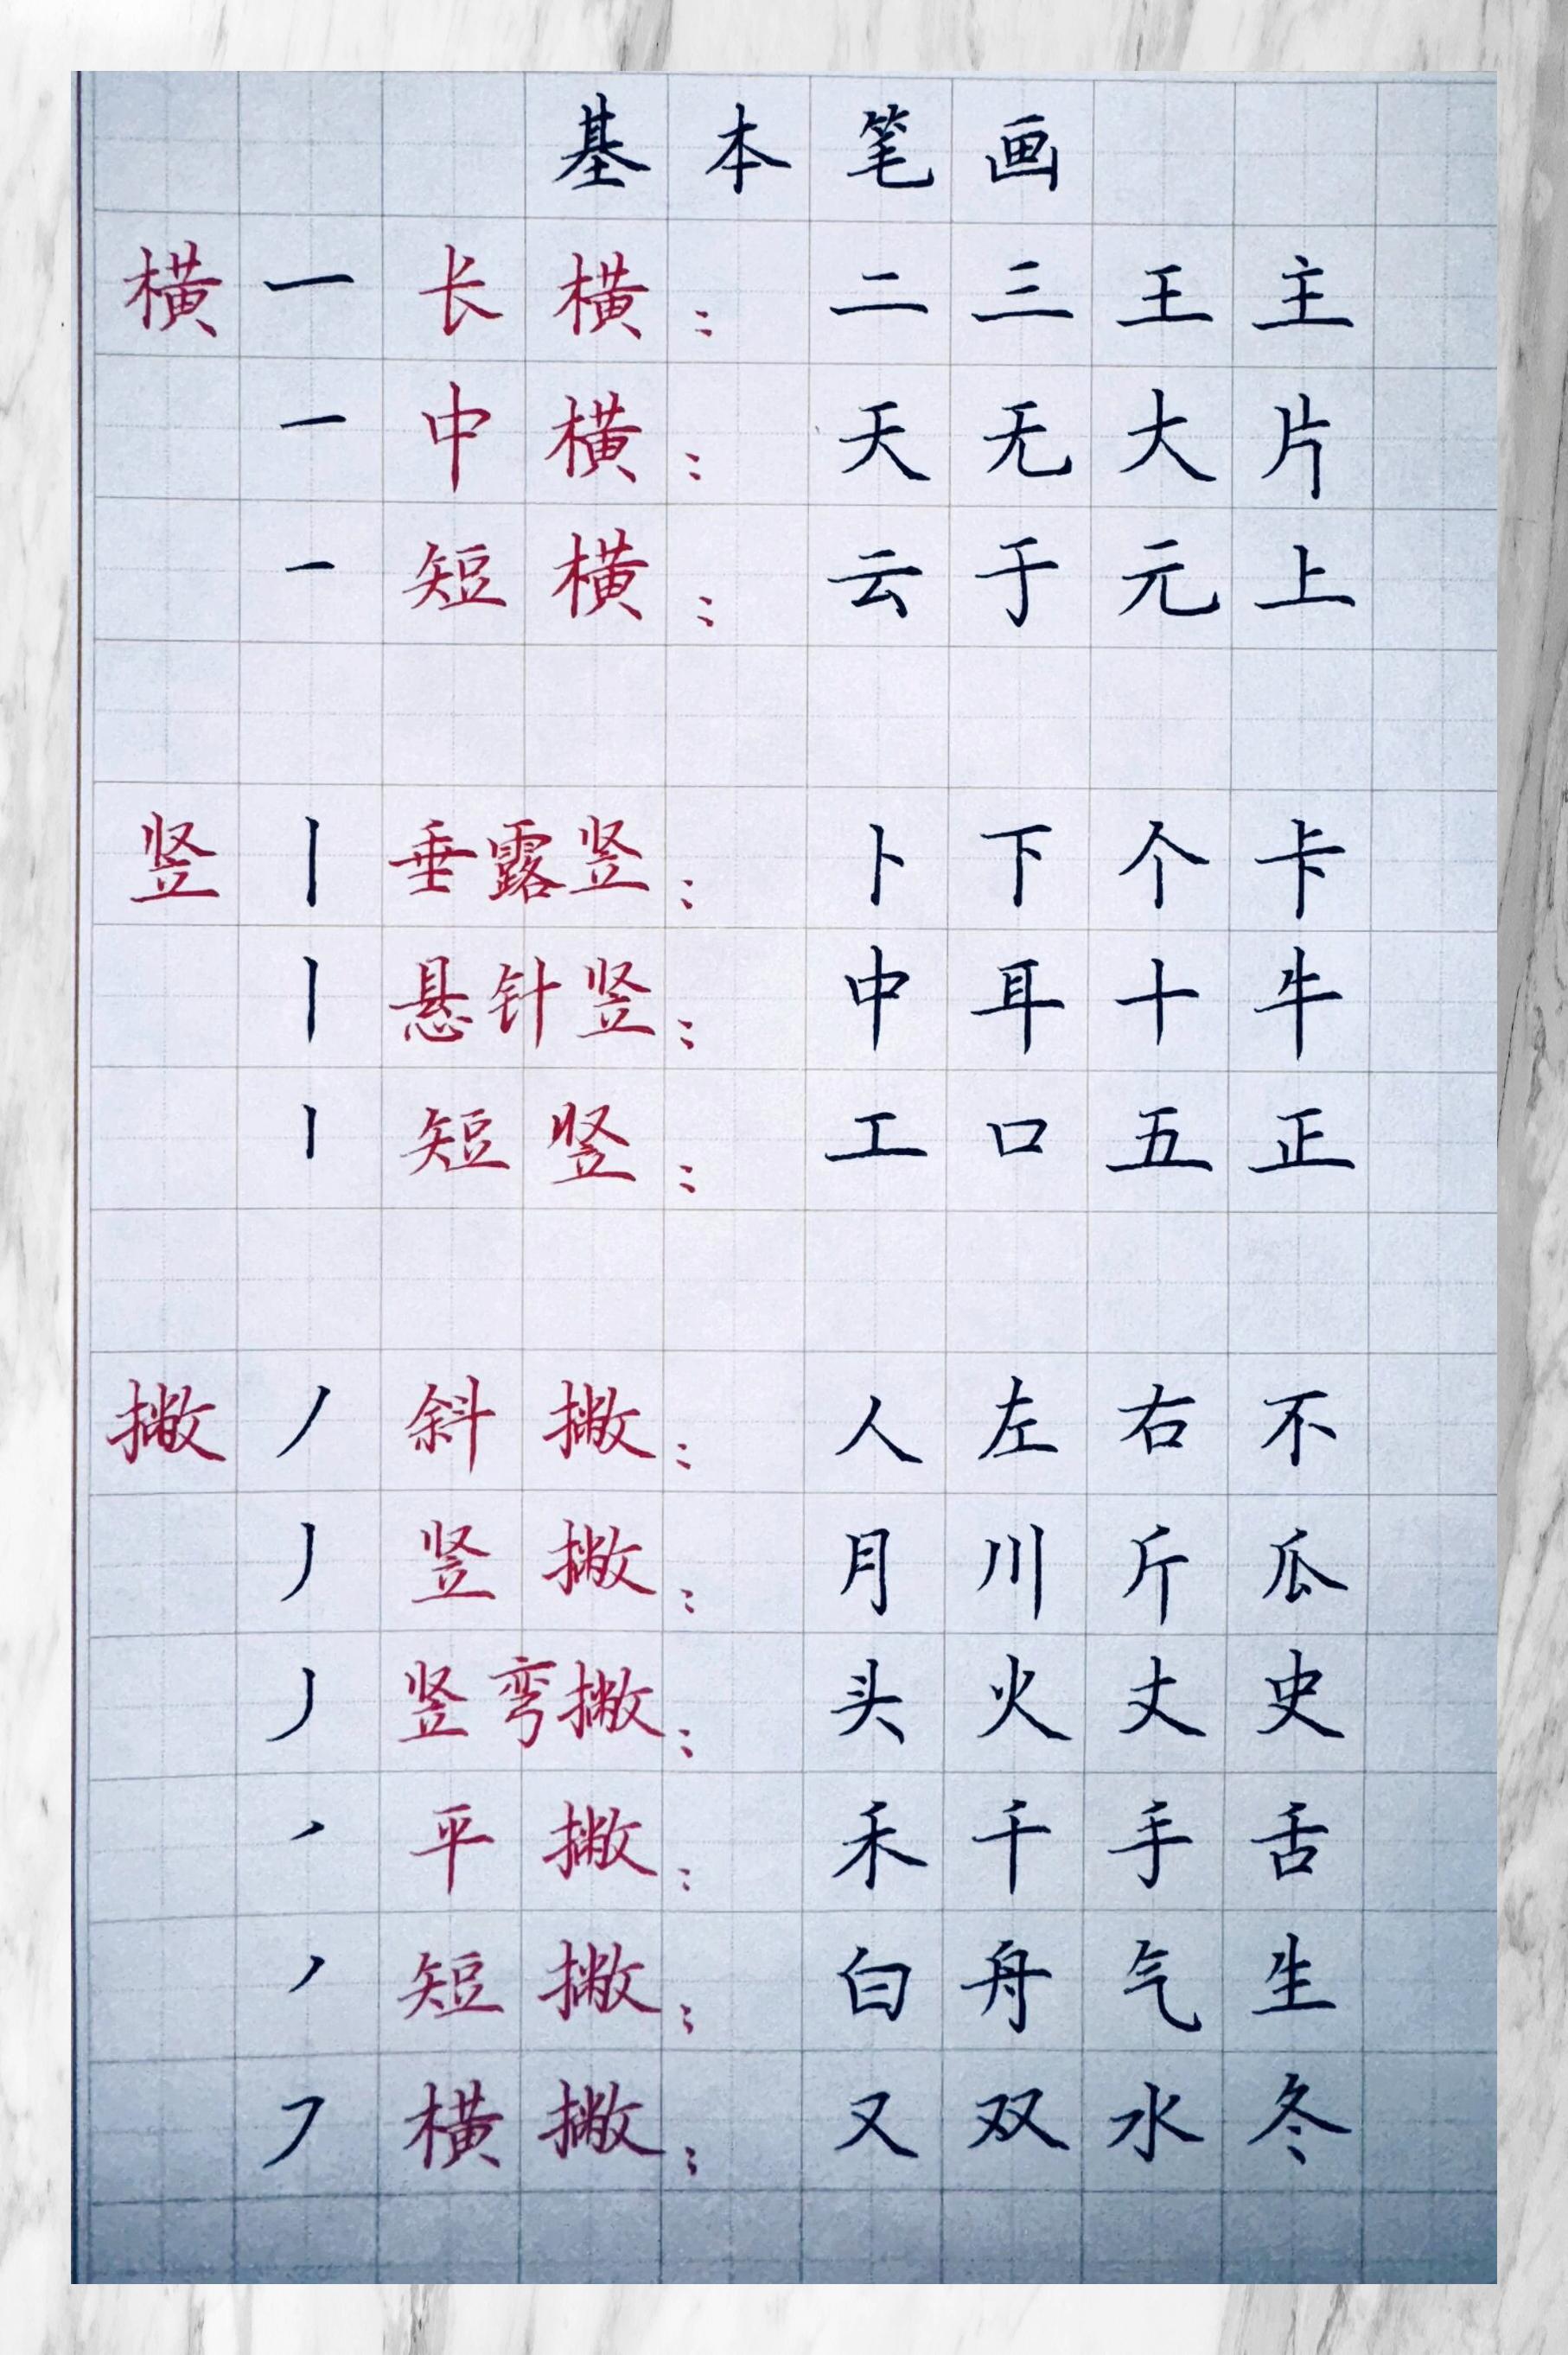 基本笔画
横 一 长横： 二 三 王 主
一 中横： 天 无 大 片
一 短横： 云 于 元 上
竖 丨 垂露竖： 卜 下 个 卡
丨 悬针竖： 中 耳 十 牛
丨 短竖： 工 口 五 正
撇 丿 斜撇： 人 左 右 不
丿 竖撇： 月 川 斤 瓜
丿 竖弯撇： 头 火 丈 史
丿 平撇： 禾 千 手 舌
丿 短撇： 白 舟 气 生
㇇ 横撇： 又 双 水 冬